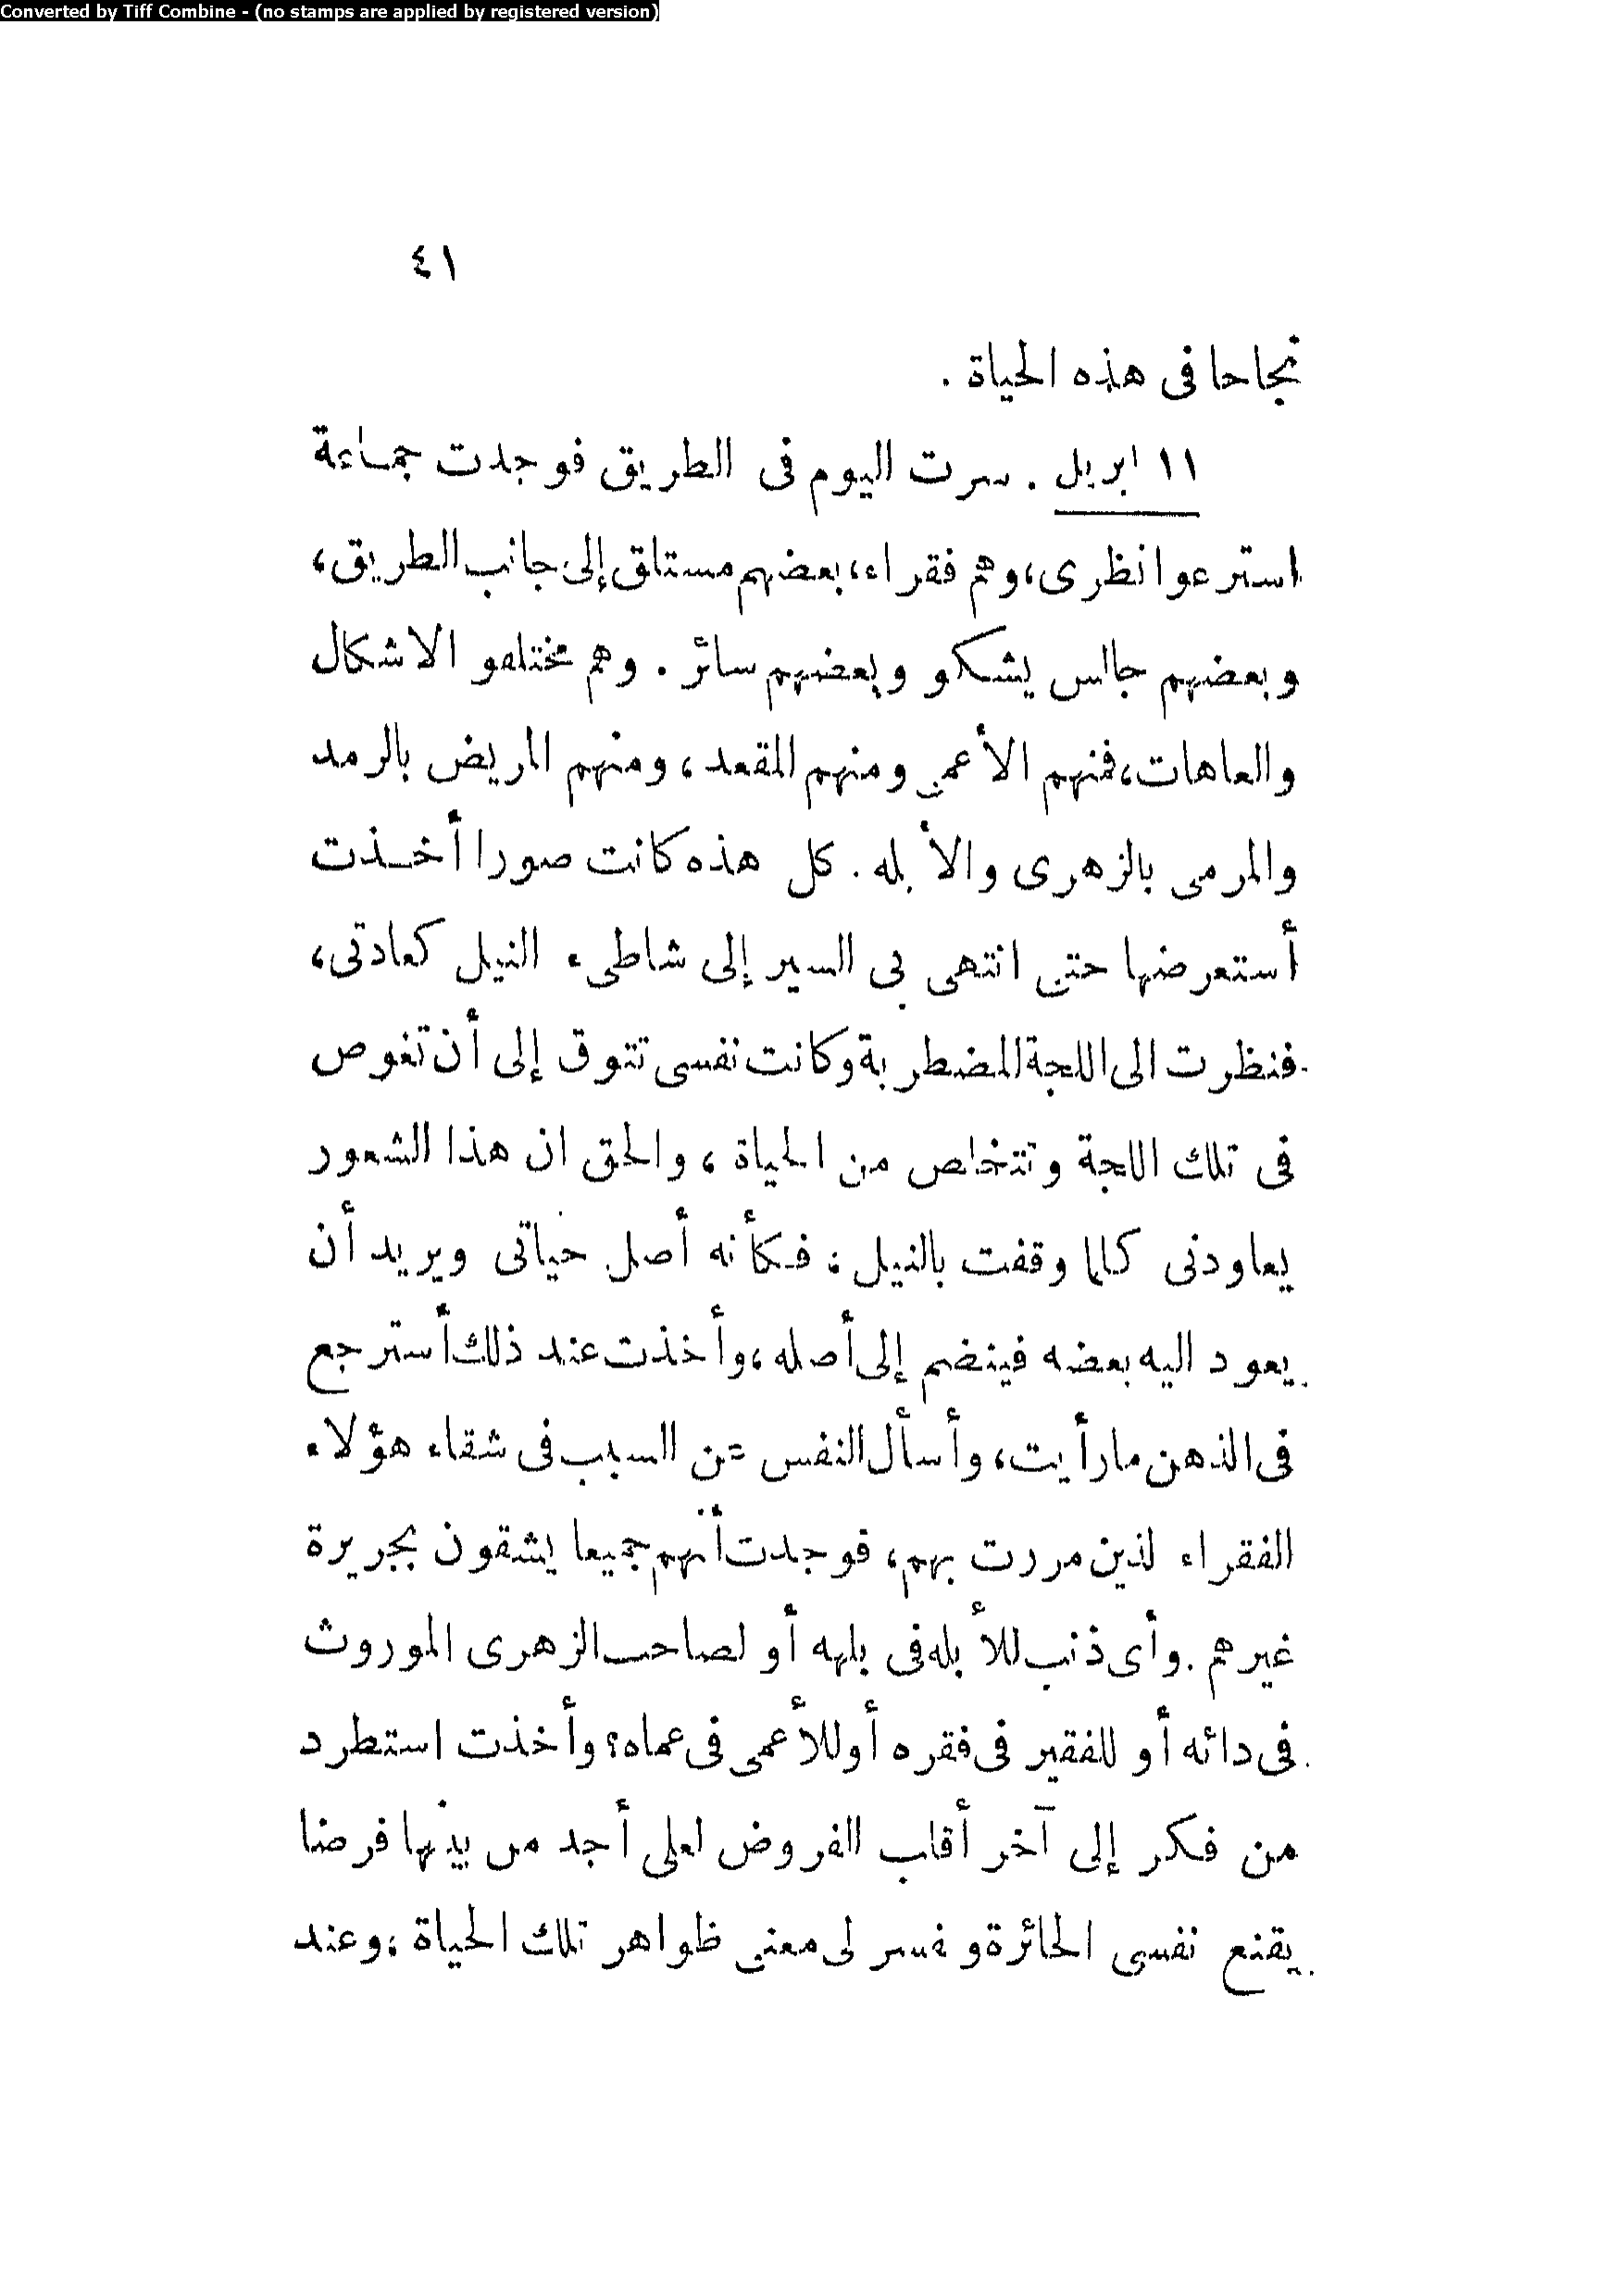 Converted by Tiff Combine - (no stamps are applied by registered version)
٤١
نجاحا فى هذه الحياة .
١١ ابريل . سرت اليوم فى الطريق فوجدت جماعة
استرعوا نظرى، وهم فقراء، بعضهم مستلق إلى جانب الطريق،
وبعضهم جالس يشكو وبعضهم سائر . وهم مختلفو الاشكال
والعاهات، فمنهم الأعمى ومنهم المقعد، ومنهم المريض بالرمد
والمرمى بالزهرى والأبله . كل هذه كانت صورا أخذت
أستعرضها حتى انتهى بى السير إلى شاطىء النيل كعادتى،
فنظرت الى اللجة المضطربة وكانت نفسى تتوق إلى أن تغوص
فى تلك اللجة وتتخلص من الحياة، والحق ان هذا الشعور
يعاودنى كلما وقفت بالنيل : فكأنه أصل حياتى ويريد أن
يعود اليه بعضه فينضم إلى أصله، وأخذت عند ذلك أسترجع
فى الذهن ما رأيت، وأسأل النفس عن السبب فى شقاء هؤلاء
الفقراء لذين مررت بهم، فوجدت أنهم جميعا يشقون بجريرة
غيرهم . وأى ذنب للأبله فى بلهه أو لصاحب الزهرى الموروث
فى دائه أو للفقير فى فقره أو للأعمى فى عماه؟ وأخذت استطرد
من فكر إلى آخر أقلب الفروض لعلى أجد من بينها فرضا
يقنع نفسى الحائرة و فسر لى معنى ظواهر تلك الحياة، وعند